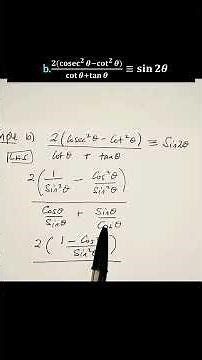 b. 2(cosec² θ−cot² θ) / cot θ+tan θ ≡ sin 2θ
b) 2(Cosec²θ − Cot²θ) / Cotθ + tanθ ≡ Sin2θ
LHS
2(1/Sin²θ − Cos²θ/Sin²θ)
Cosθ/Sinθ + Sinθ/Cosθ
2(1 − Cos / Sin²θ)